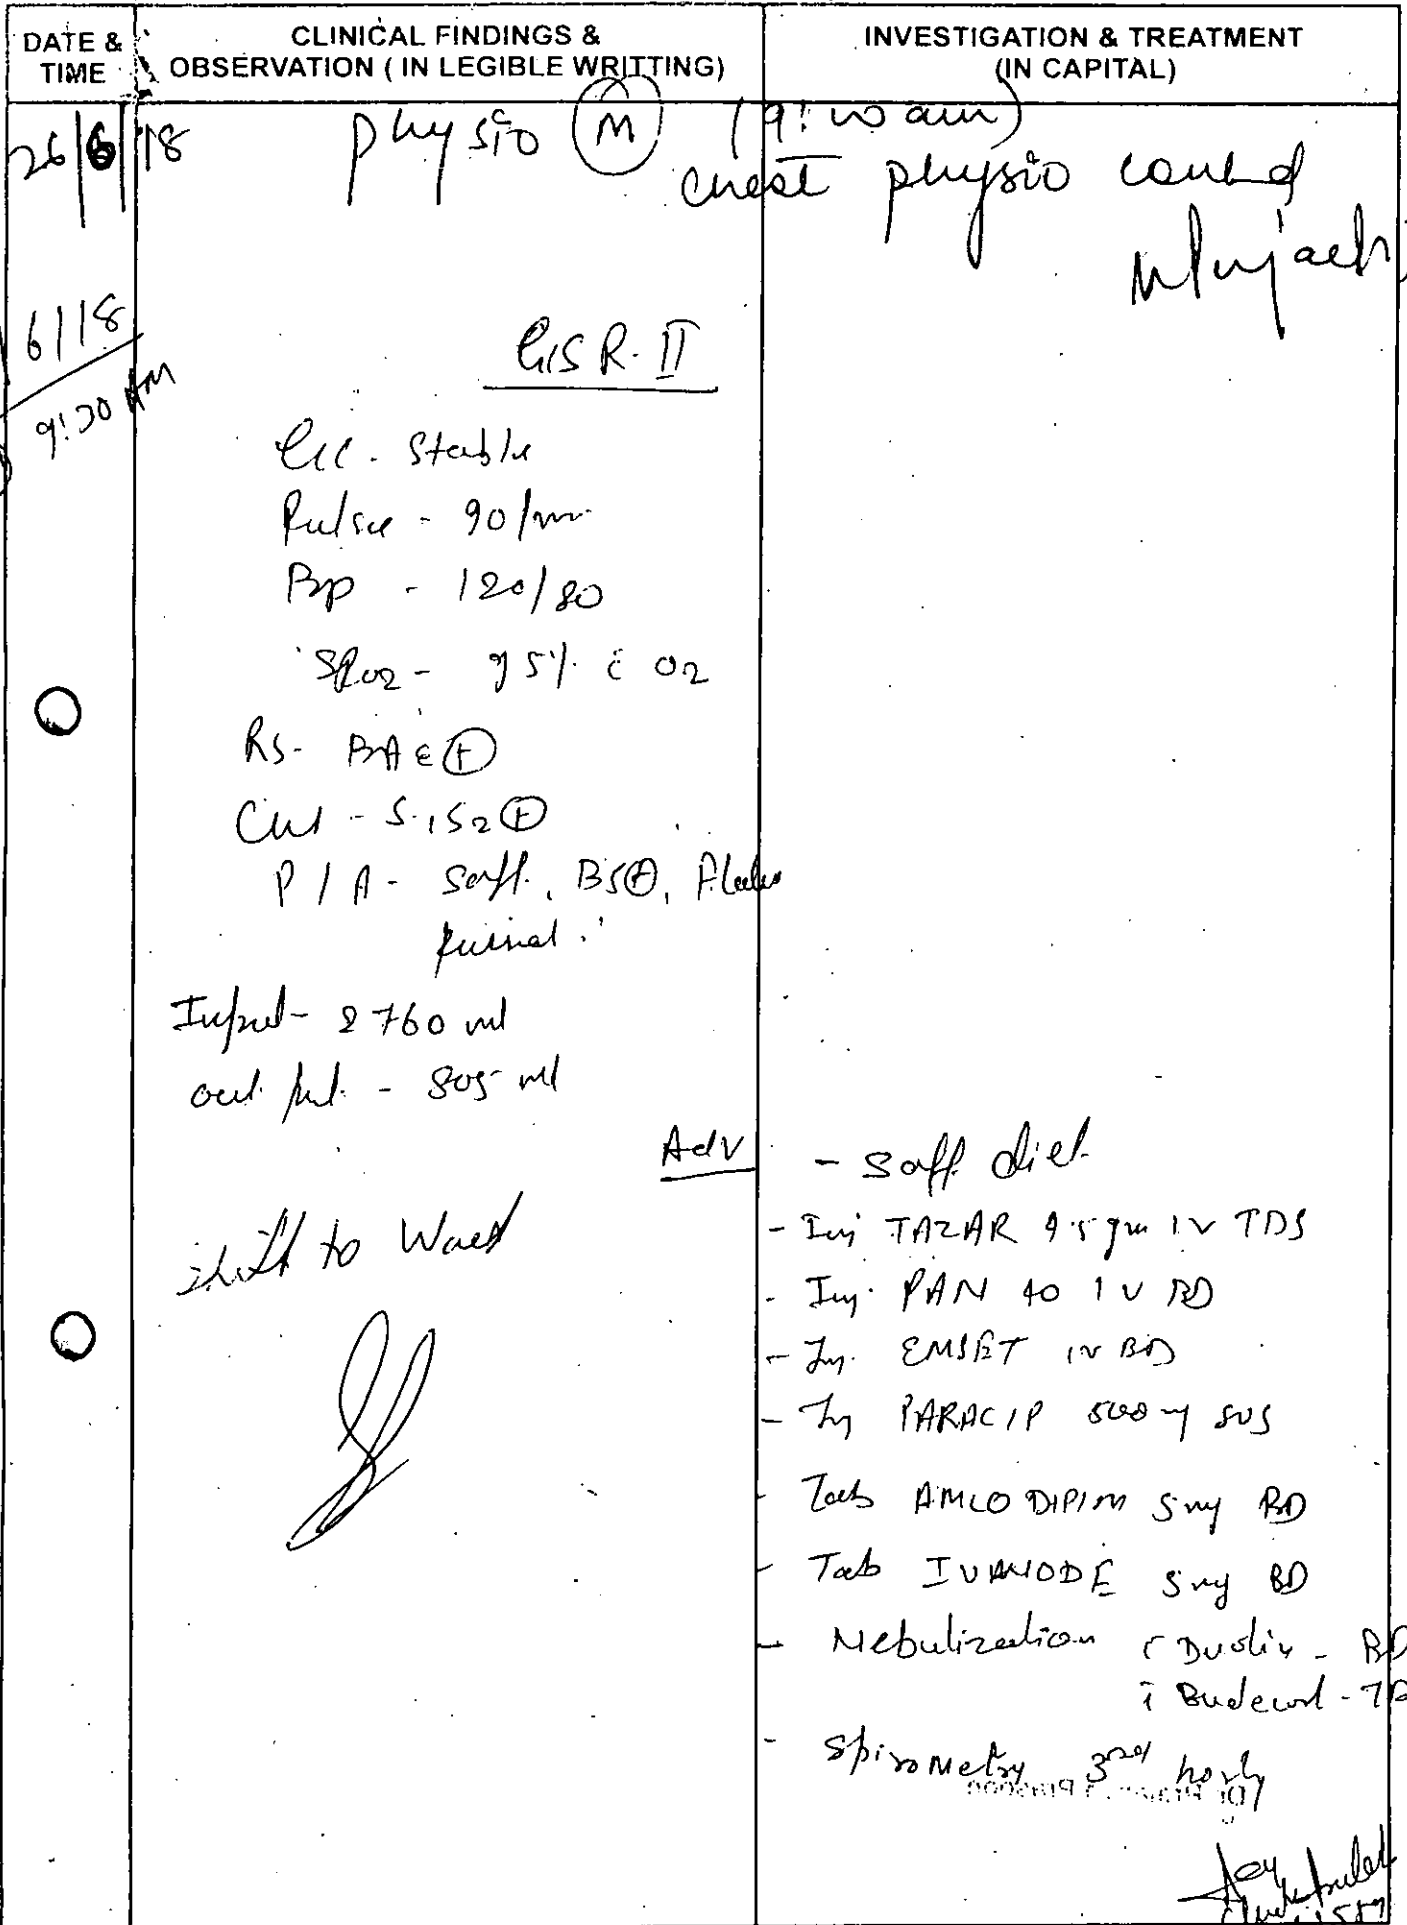 DATE & TIME
CLINICAL FINDINGS & OBSERVATION ( IN LEGIBLE WRITTING)
INVESTIGATION & TREATMENT (IN CAPITAL)
26/6/18 physio (M) (9:10 am)
chest physio
6/18
9:30 AM
GC - Stable
Pulse - 90/m
Bp - 120/80
SPO2 - 95% c̄ O2
RS - BAE (+)
CVS - S1S2 (+)
P/A - Soft, BS(+), Flatus
Input - 2760 ml
out put - 805 ml
Adv - Soft diet
shift to Ward
- Inj TAZAR 4.5 gm IV TDS
- Inj. PAN 40 IV BD
- Inj. EMSET IV BD
- Inj PARACIP 500 mg SOS
- Tab AMLODIPIN 5mg BD
- Tab IVANODE 5mg BD
- Nebulization c̄ Duolin - BD
c̄ Budecort -
- Spirometry 3rd hourly